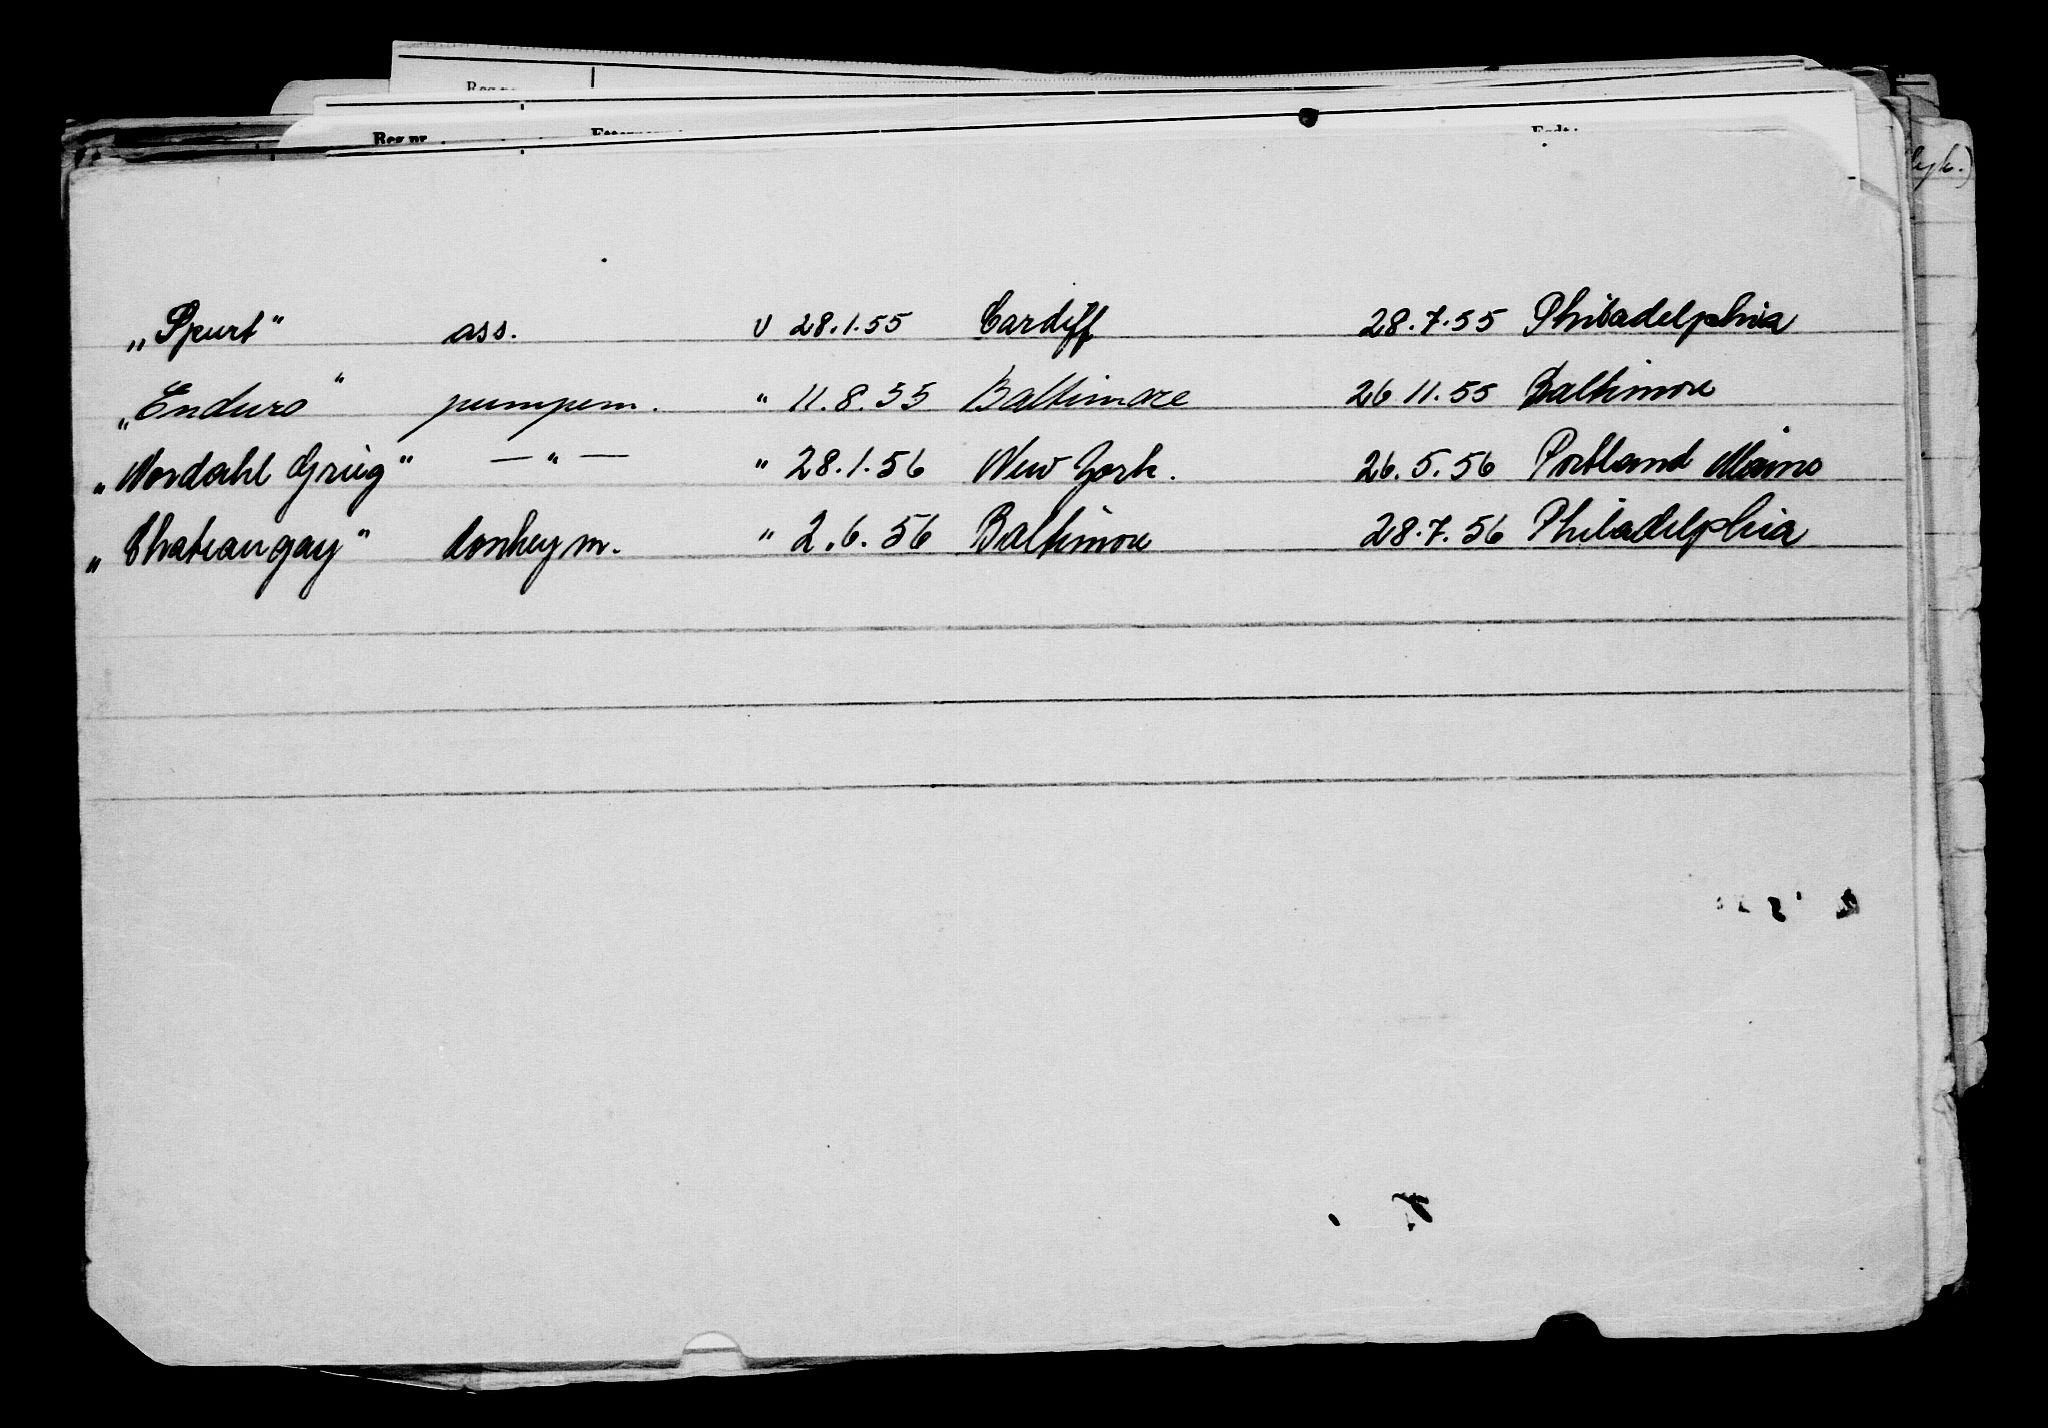 Reg.nr.
Reg.nr.
„Spurt" ass. v 28.1.55 Cardiff 28.7.55 Philadelphia
„Enduro" pumpem. " 11.8.55 Baltimore 26 11.55 Baltimore
„Nordahl Grieg" — „ — " 28.1.56 New York. 26.5.56 Portland Maine
„Chateaugay" donkeym. " 2.6.56 Baltimore 28.7.56 Philadelphia